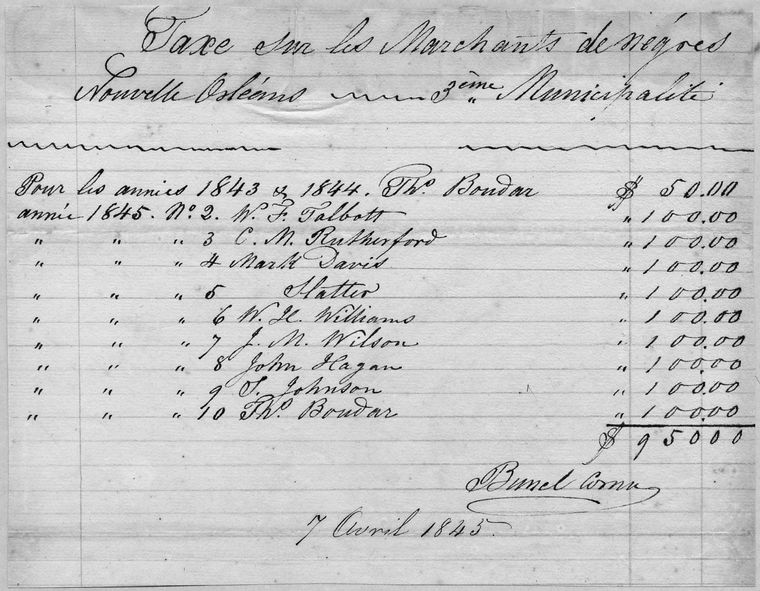 Taxe sur les Marchants de négres
Nouvelle Orléans 3ème Municipalité
Pour les années 1843 & 1844. Thos. Boudar $ 50.00
année 1845. No. 2. W. F. Talbott " 100.00
" " " 3 C. M. Rutherford " 100.00
" " " 4 Mark Davis " 100.00
" " " 5 Slatter " 100.00
" " " 6 W. H. Williams " 100.00
" " " 7 J. M. Wilson " 100.00
" " " 8 John Hagan " 100.00
" " " 9 S. Johnson " 100.00
" " " 10 Thos. Boudar " 100.00
$ 95000
Bunel
7 Avril 1845.